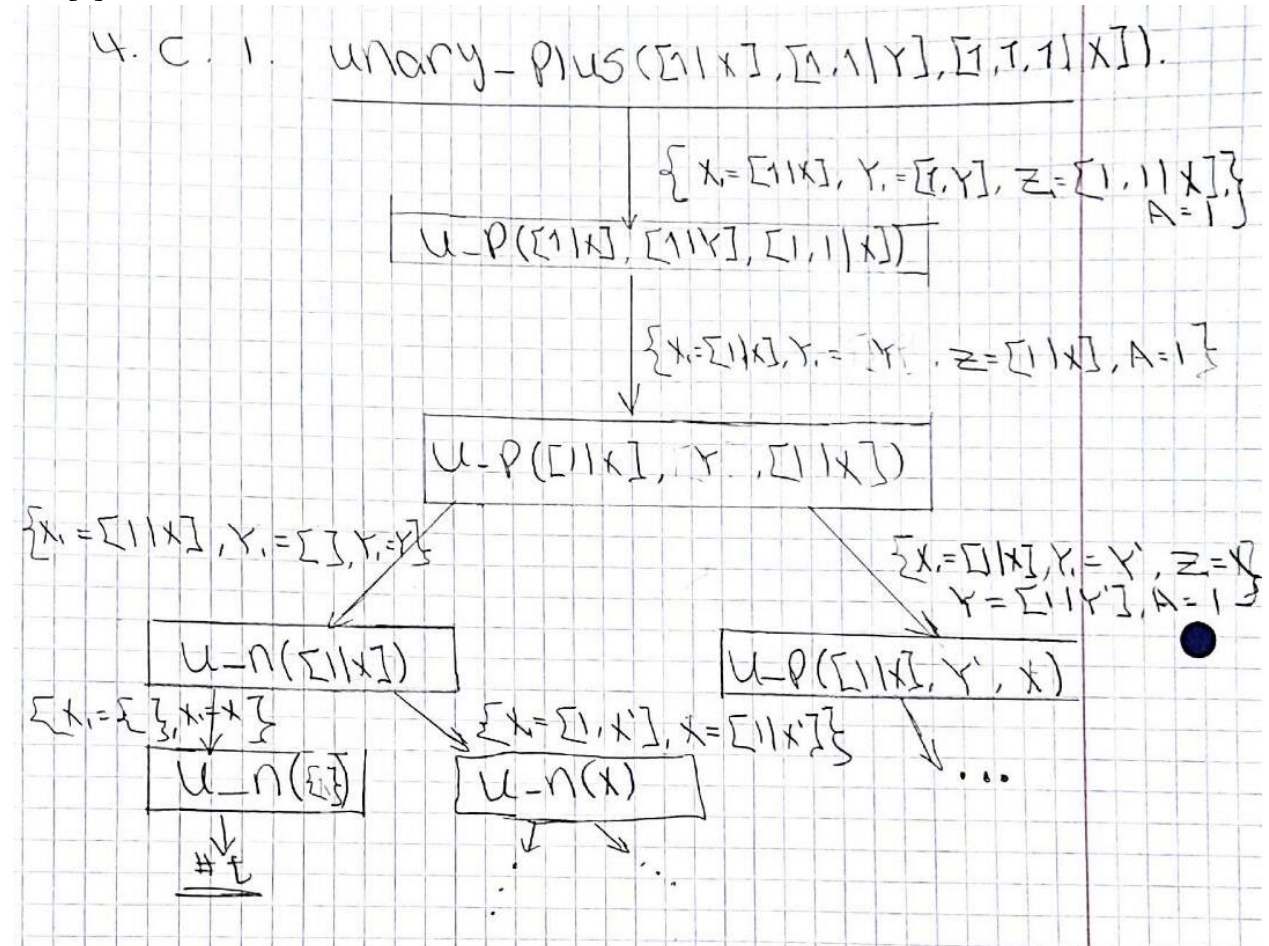 4. C. 1. unary_Plus([1|X],[1,1|Y],[1,1,1|X]).
{ X₁=[1|X], Y₁=[1,Y], Z₁=[1,1|X],
A=1 }
U_P([1|X],[1|Y],[1,1|X])
{X₁=[1|X],Y₁=[Y], Z=[1|X], A=1}
U_P([1|X], Y ,[1|X])
{X₁=[1|X],Y₁=[],Y₁=Y}
{X₁=[1|X],Y₁=Y', Z₁=X,
Y=[1|Y'],A=1}
U_n([1|X])
U_P([1|X],Y',X)
{X₁={},X₁=X}
{X₁=[1,X'],X=[1|X']}
U_n({})
U_n(X)
...
#t